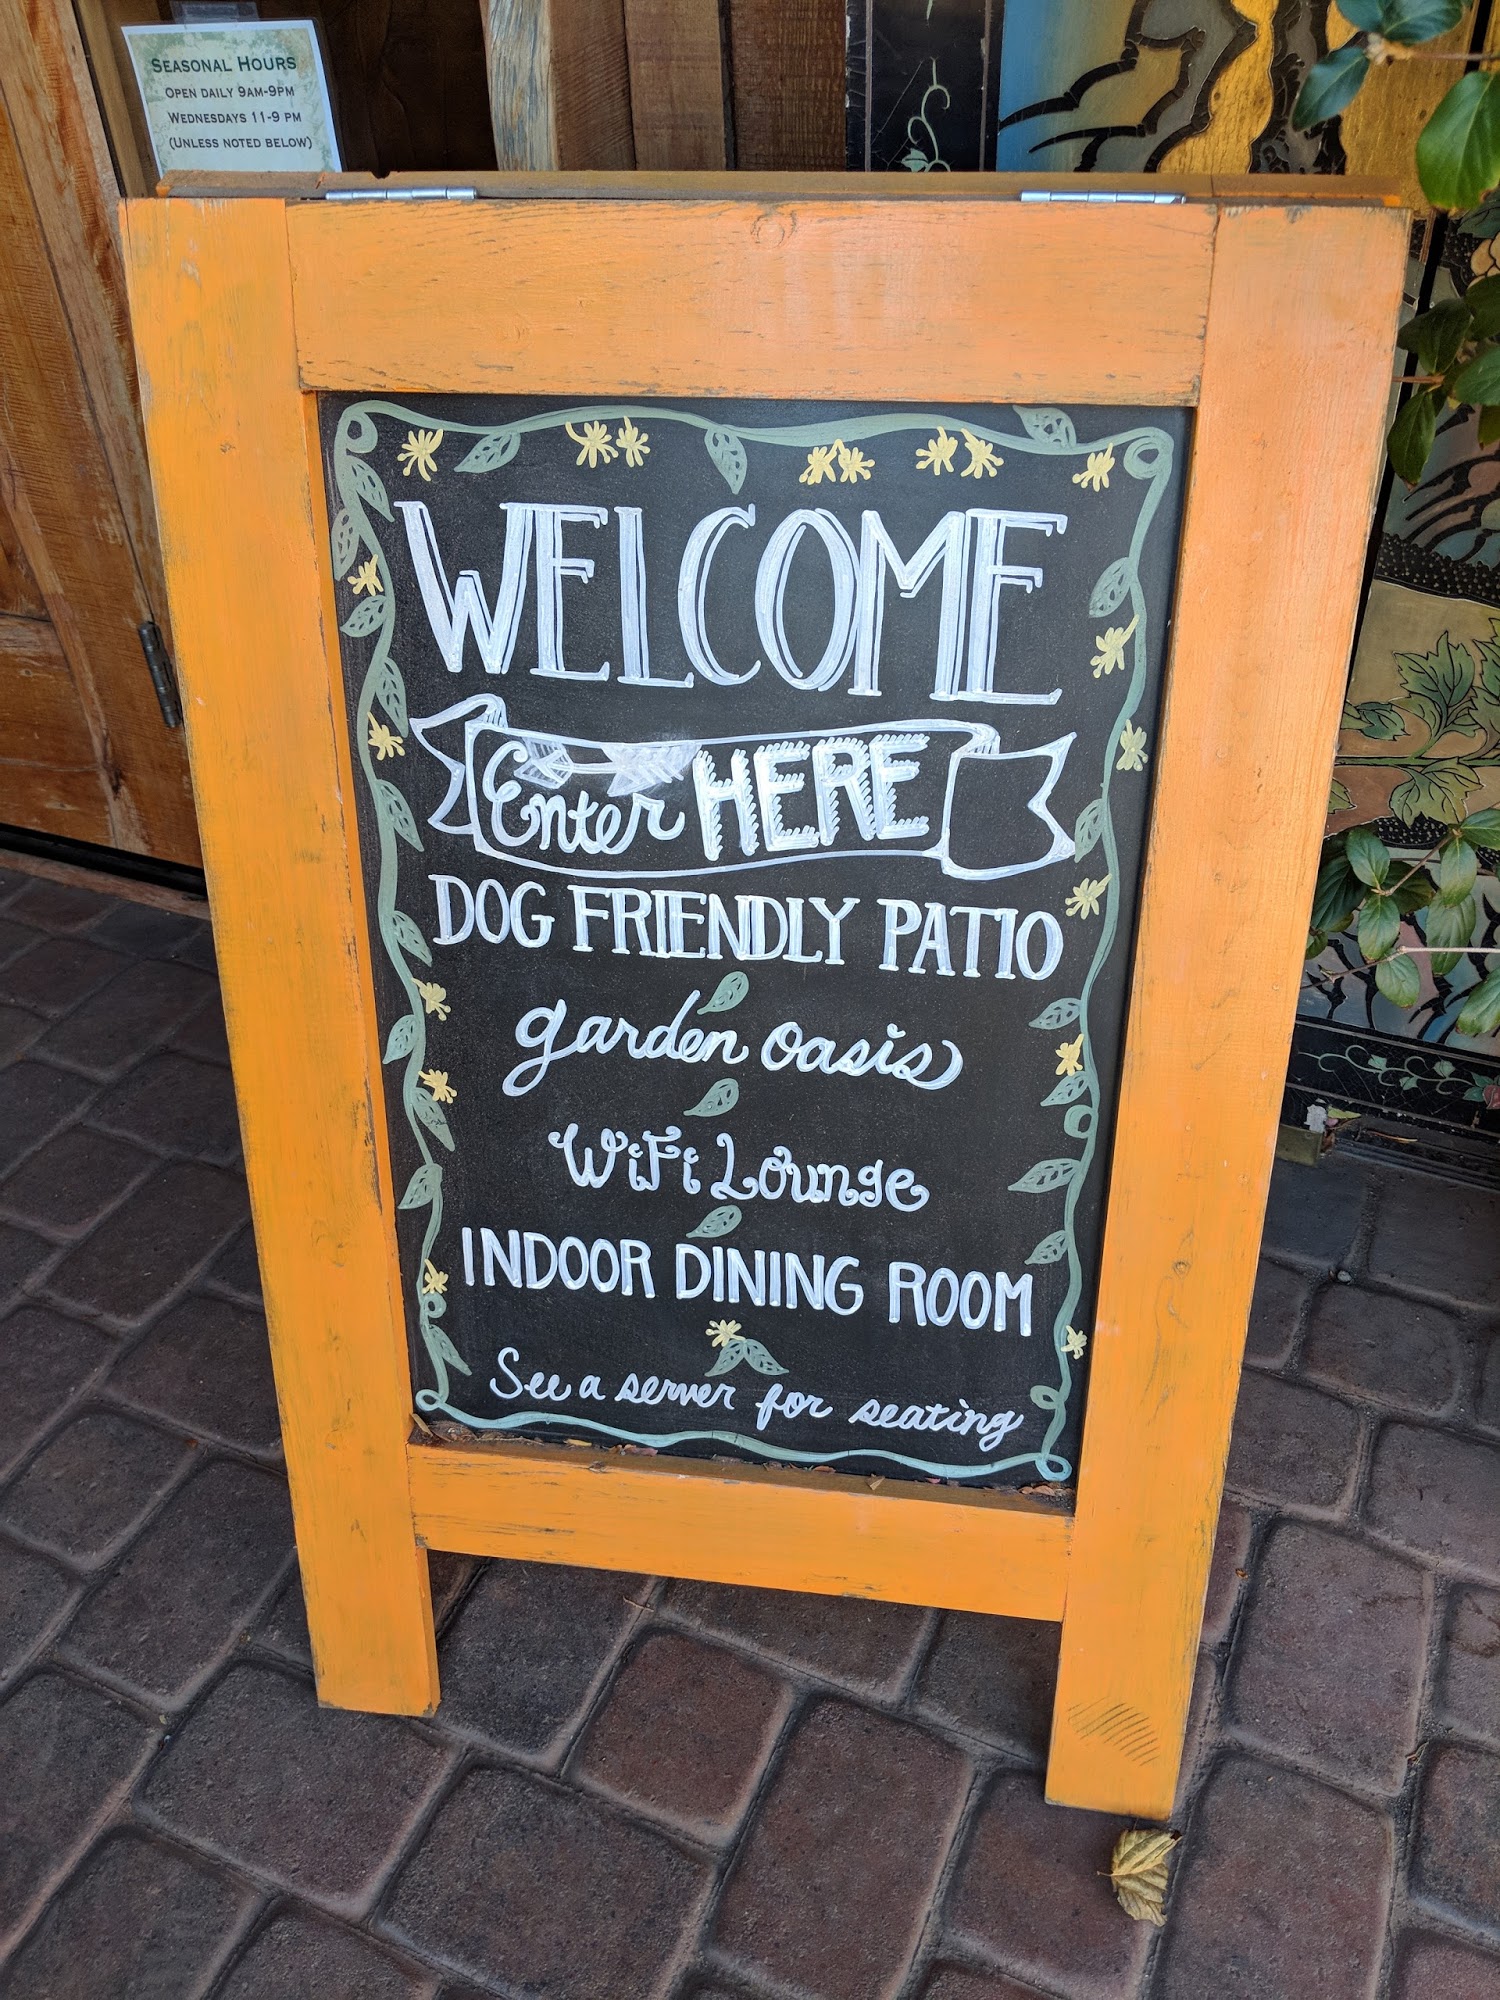 SEASONAL HOURS
OPEN DAILY 9AM-9PM
WEDNESDAYS 11-9 PM
(UNLESS NOTED BELOW)
WELCOME
Enter HERE
DOG FRIENDLY PATIO
garden oasis
WiFi Lounge
INDOOR DINING ROOM
See a server for seating